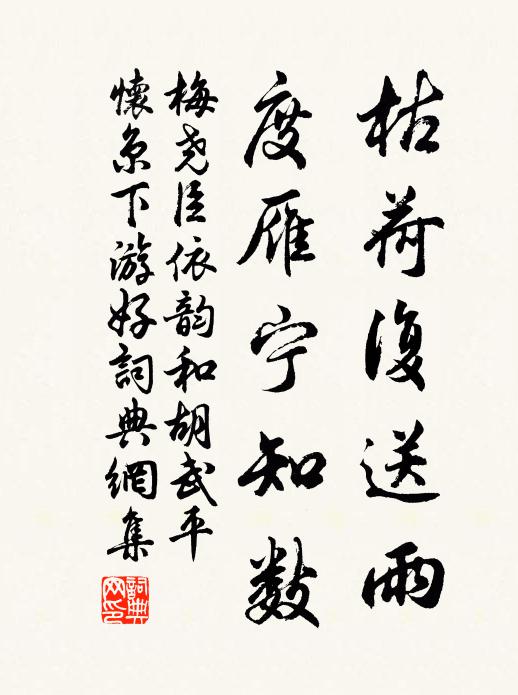 枯荷復送雨
度雁宁知数
梅尭臣依韵和胡武平
懷京下游好詞典網集
詞典網印